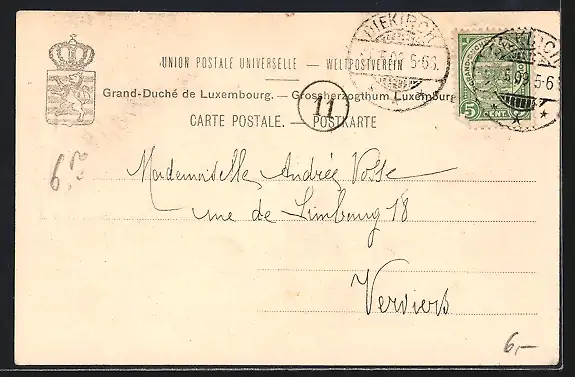 UNION POSTALE UNIVERSELLE — WELTPOSTVEREIN
Grand-Duché de Luxembourg. — Grossherzogthum Luxemburg
CARTE POSTALE. — POSTKARTE
DIEKIRCH
5-6
11
5 CENT. 5
6.
Mademoiselle Andrée Vosse
rue de Limbourg 18
Verviers
6,-